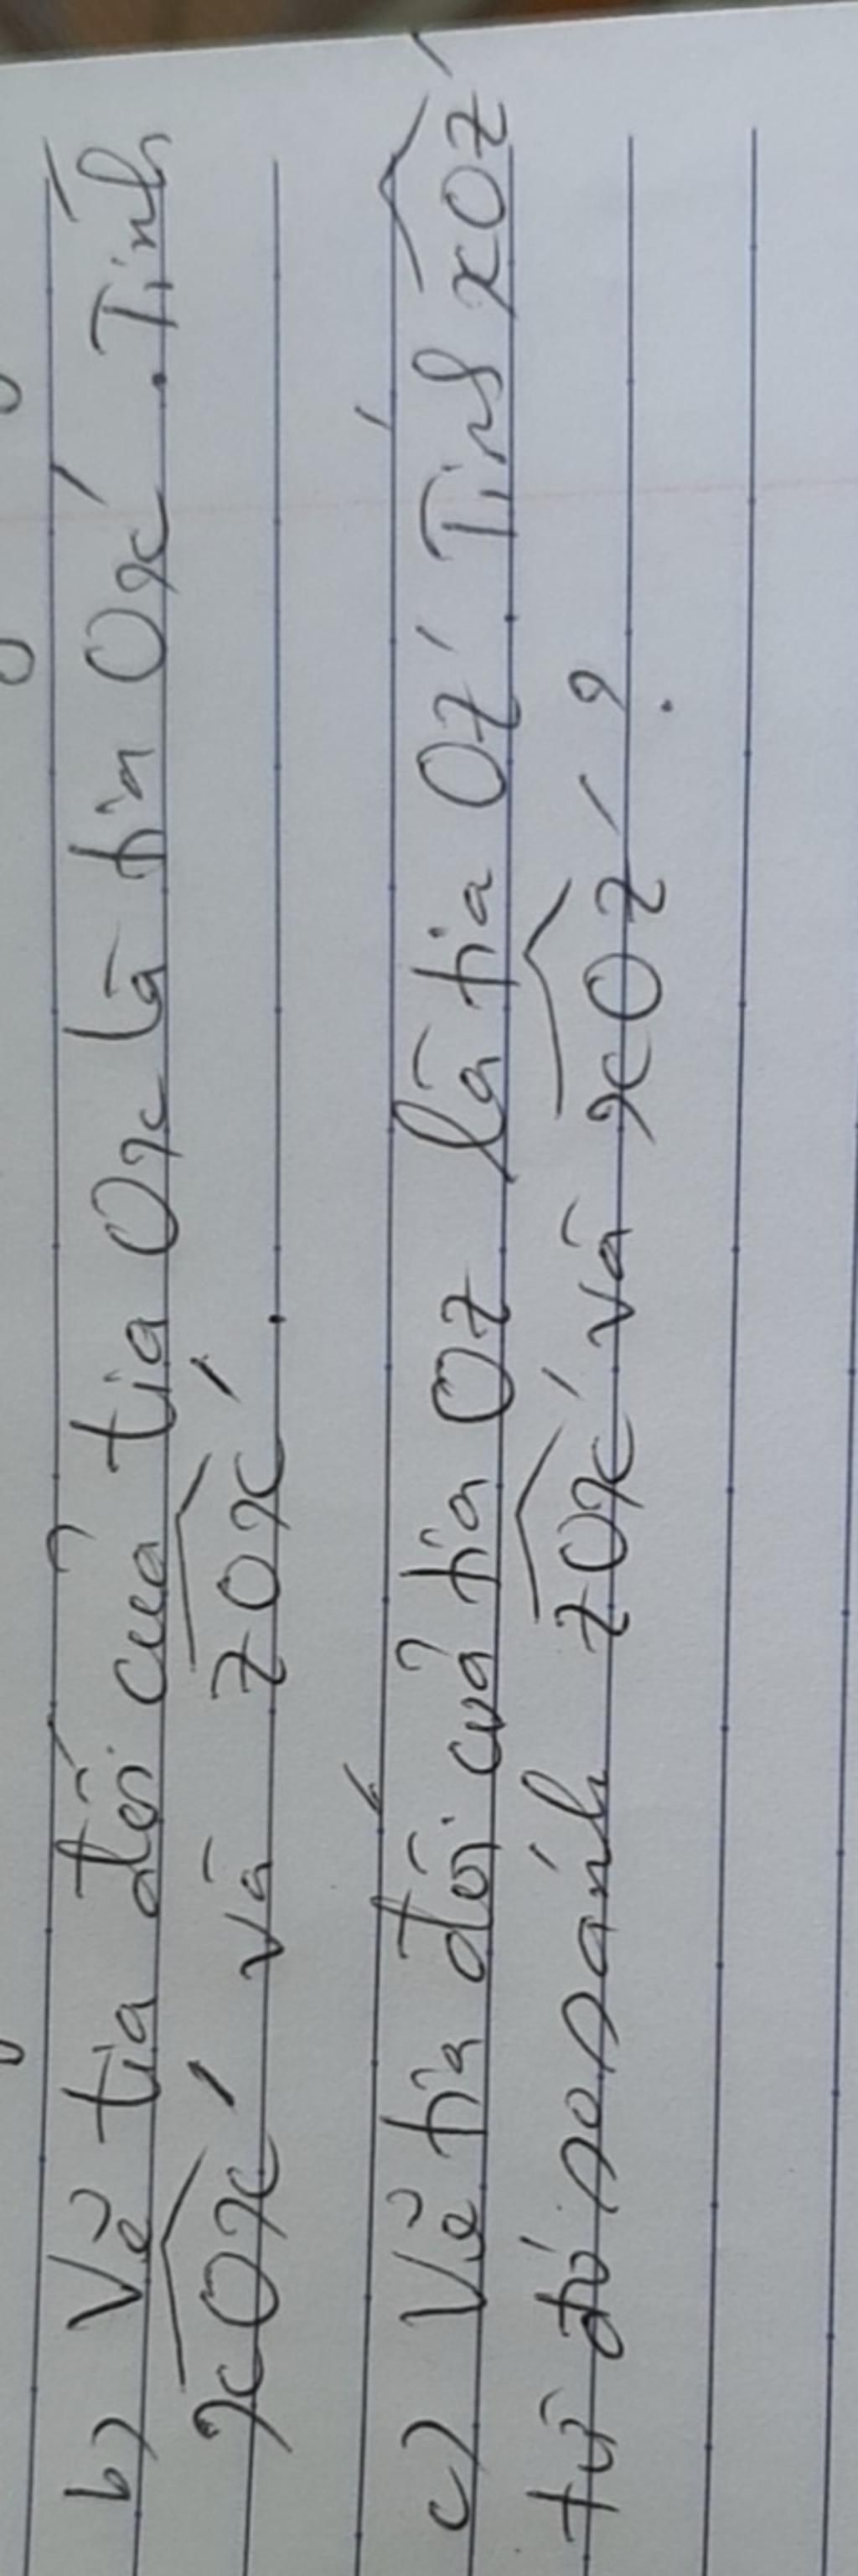 b) Vẽ tia đối của tia Ox là tia Ox'. Tính
xOx' và zOx'.
c) Vẽ tia đối của tia Oz là tia Oz'. Tính xOz'
từ đó so sánh zOx' và xOz'?